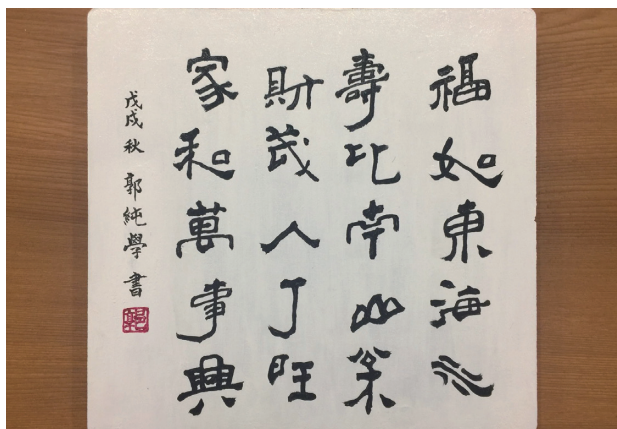 福如東海水
壽比南山枀
財茂人丁旺
家和萬事興
戊戌秋 郭純學書